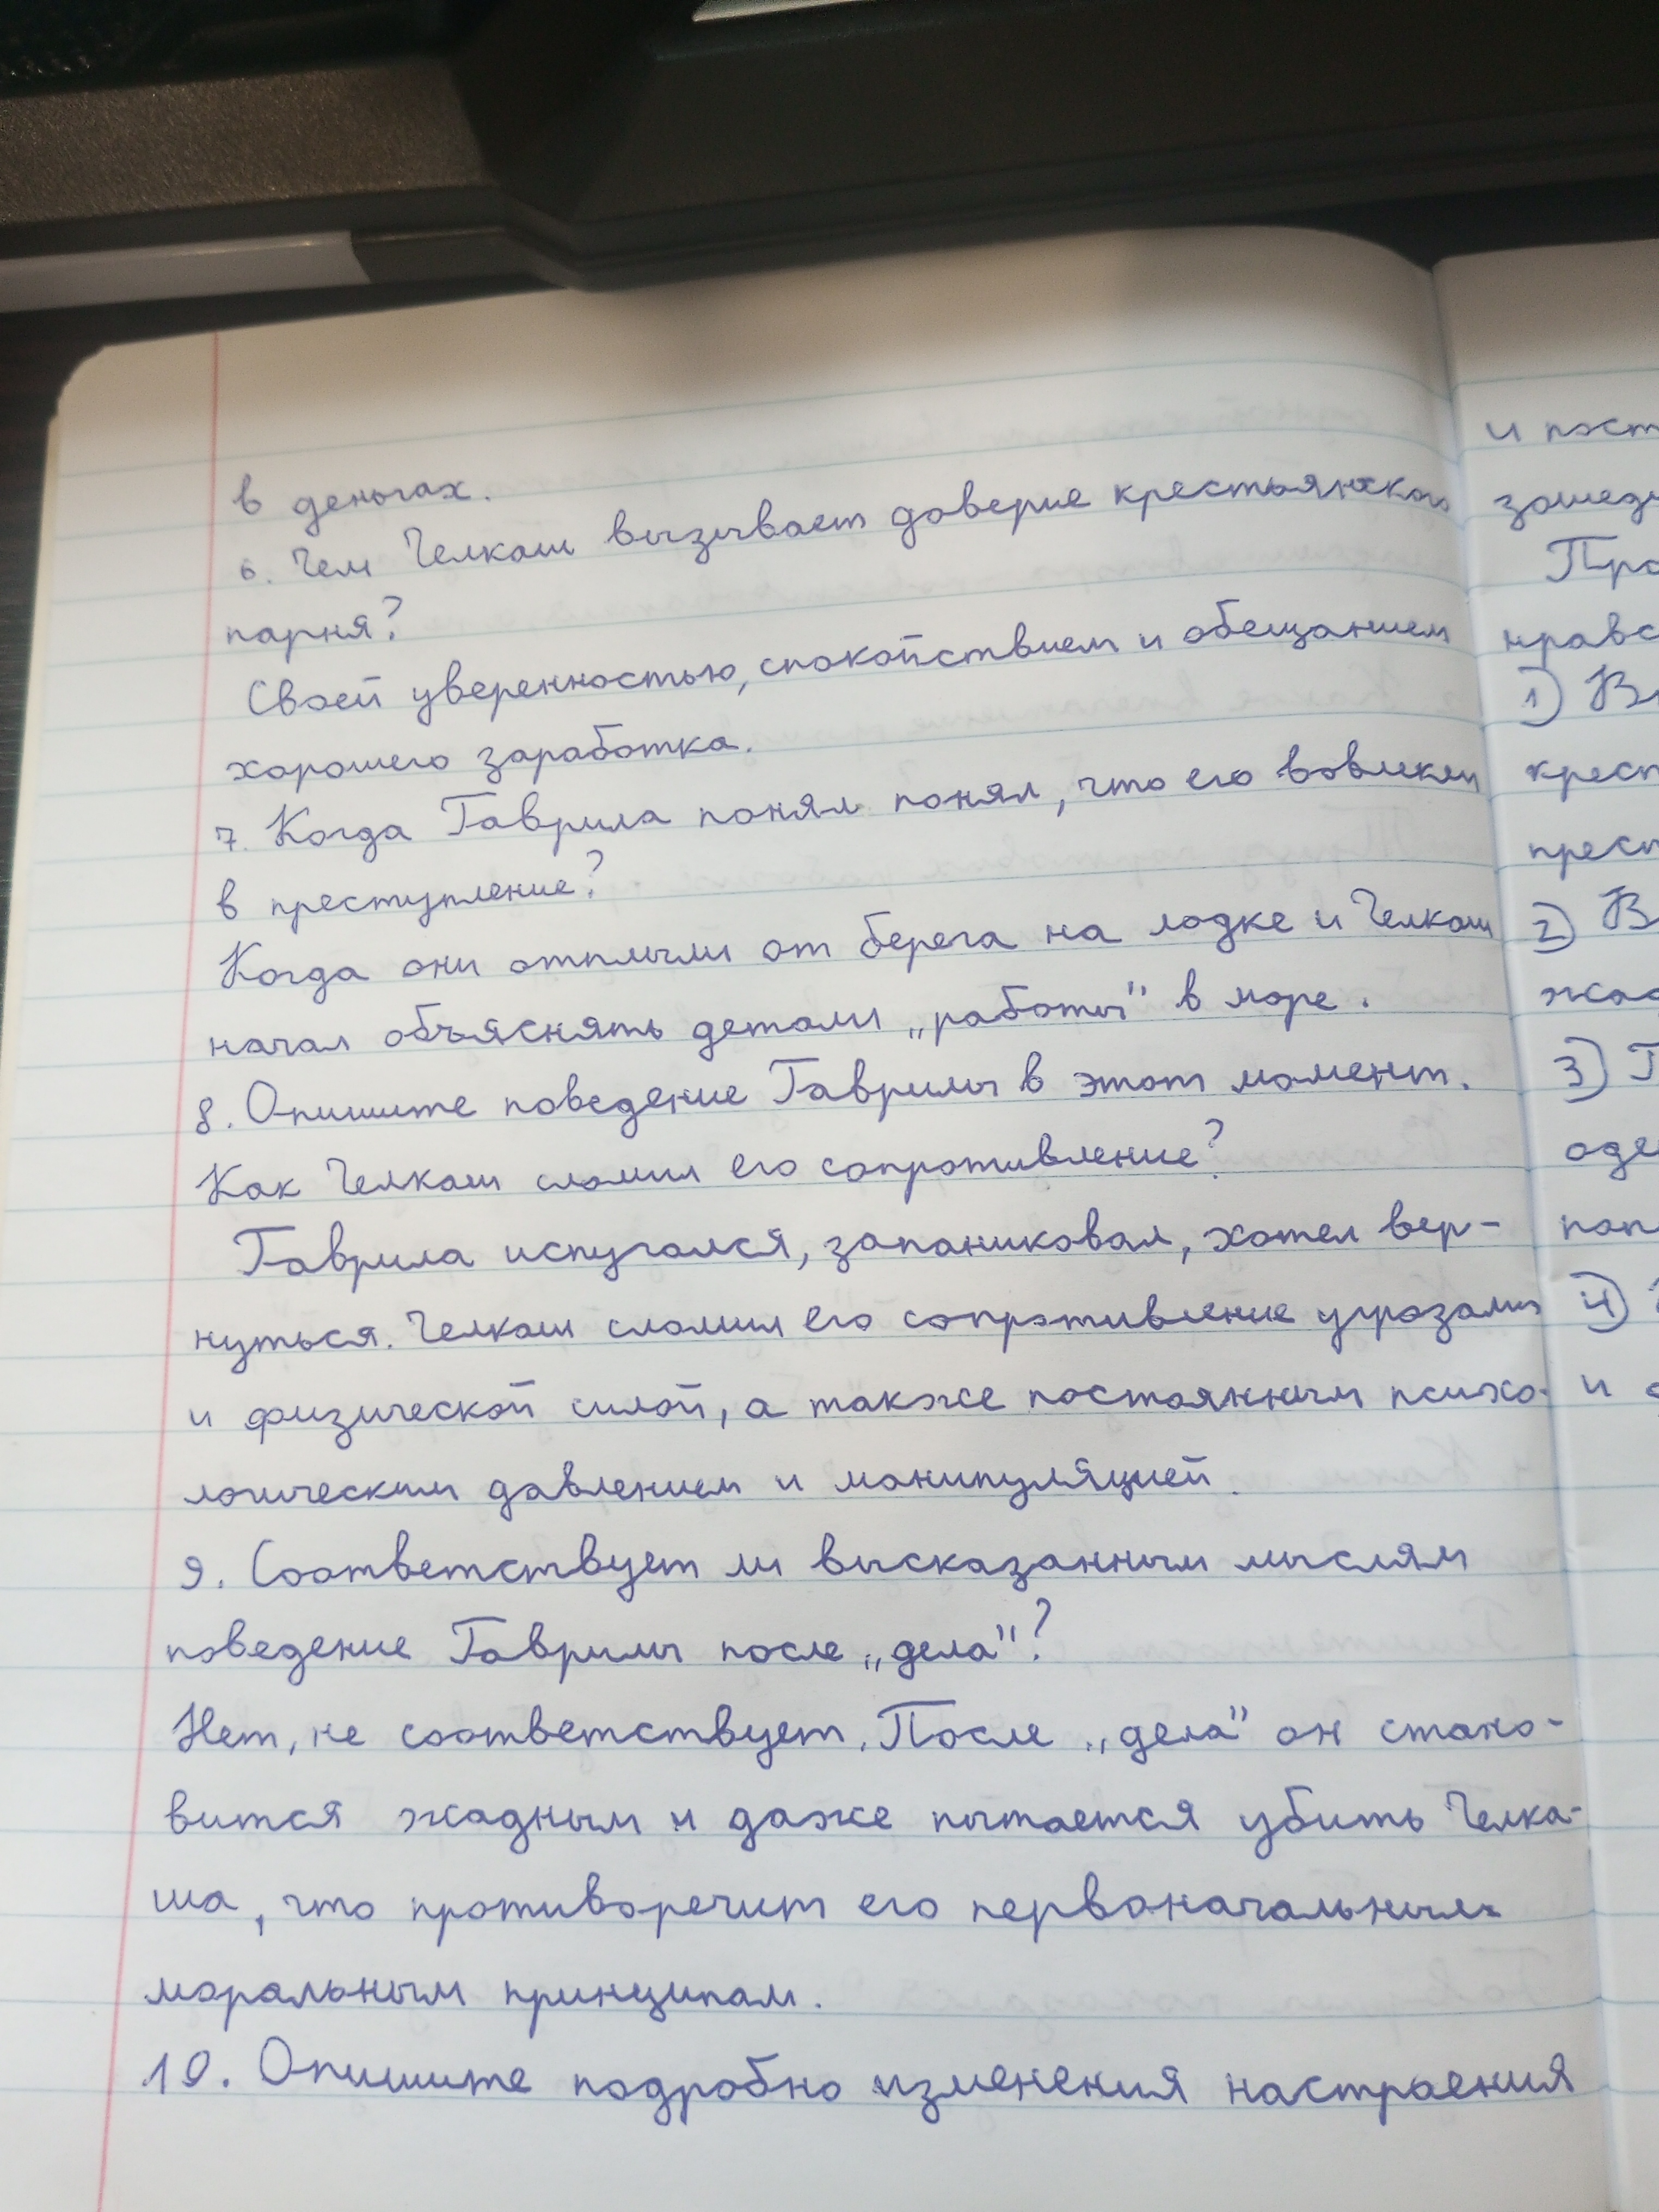 в деньгах.
6. Чем Челкаш вызывает доверие крестьянского
парня?
Своей уверенностью, спокойствием и обещанием
хорошего заработка.
7. Когда Гаврила понял понял, что его вовлекли
в преступление?
Когда они отплыли от берега на лодке и Челкаш
начал объяснять детали „работы" в море.
8. Опишите поведение Гаврилы в этот момент.
Как Челкаш сломил его сопротивление?
Гаврила испугался, запаниковал, хотел вер-
нуться. Челкаш сломил его сопротивление угрозами
и физической силой, а также постоянным психо-
логическим давлением и манипуляцией.
9. Соответствует ли высказанным мыслям
поведение Гаврилы после „дела"?
Нет, не соответствует. После „дела" он стано-
вится жадным и даже пытается убить Челка-
ша, что противоречит его первоначальным
моральным принципам.
10. Опишите подробно изменения настроения
и пост
зашед
Про
нравс
1) В
крест
прест
2) В
жад
3) Г
оде
поп
4)
и